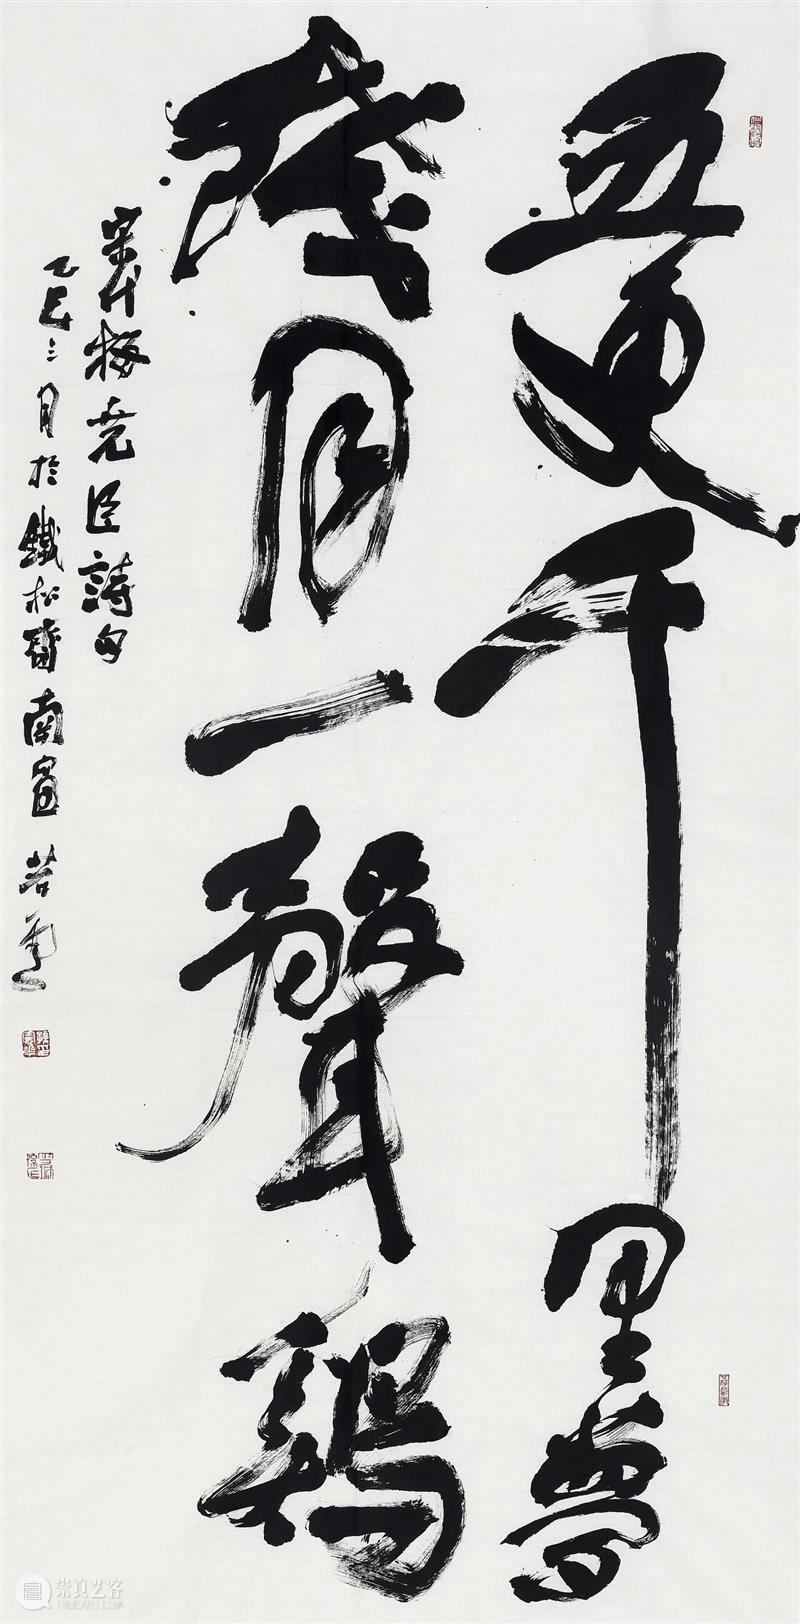 五更千里夢
殘月一聲鷄
宋代梅堯臣詩句
乙巳三月於鐵松齋南窗若
崇真艺客
TRUEART.COM